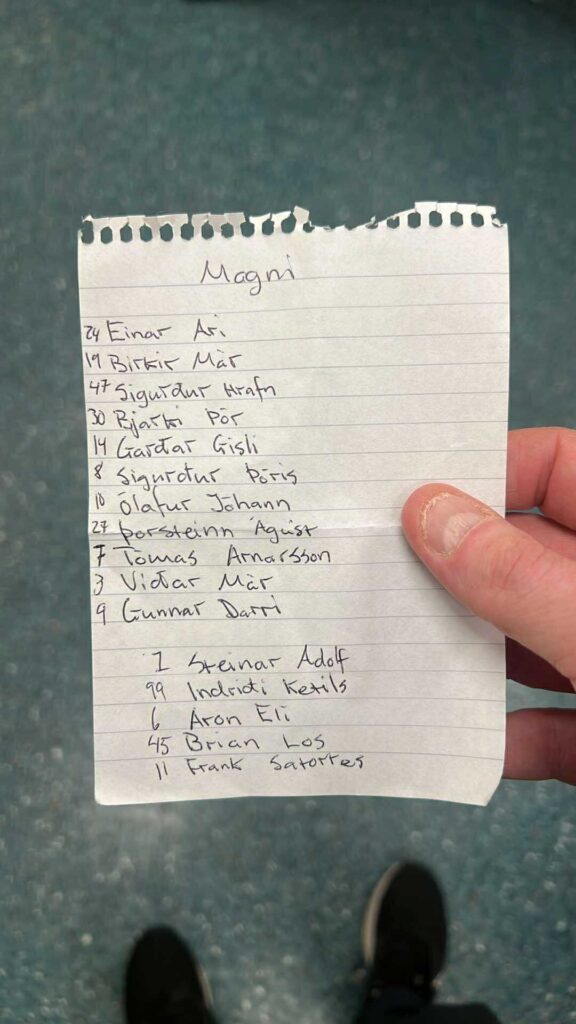 Magni
24 Einar Ari
19 Birkir Már
47 Sigurður Hrafn
30 Bjarki Þór
14 Garðar Gísli
8 Sigurður Þóris
10 Ólafur Jóhann
27 Þorsteinn Ágúst
7 Tómas Arnarsson
3 Viðar Már
9 Gunnar Darri
1 Steinar Adolf
99 Indriði Ketils
6 Aron Elí
45 Brian Los
11 Frank Satorres